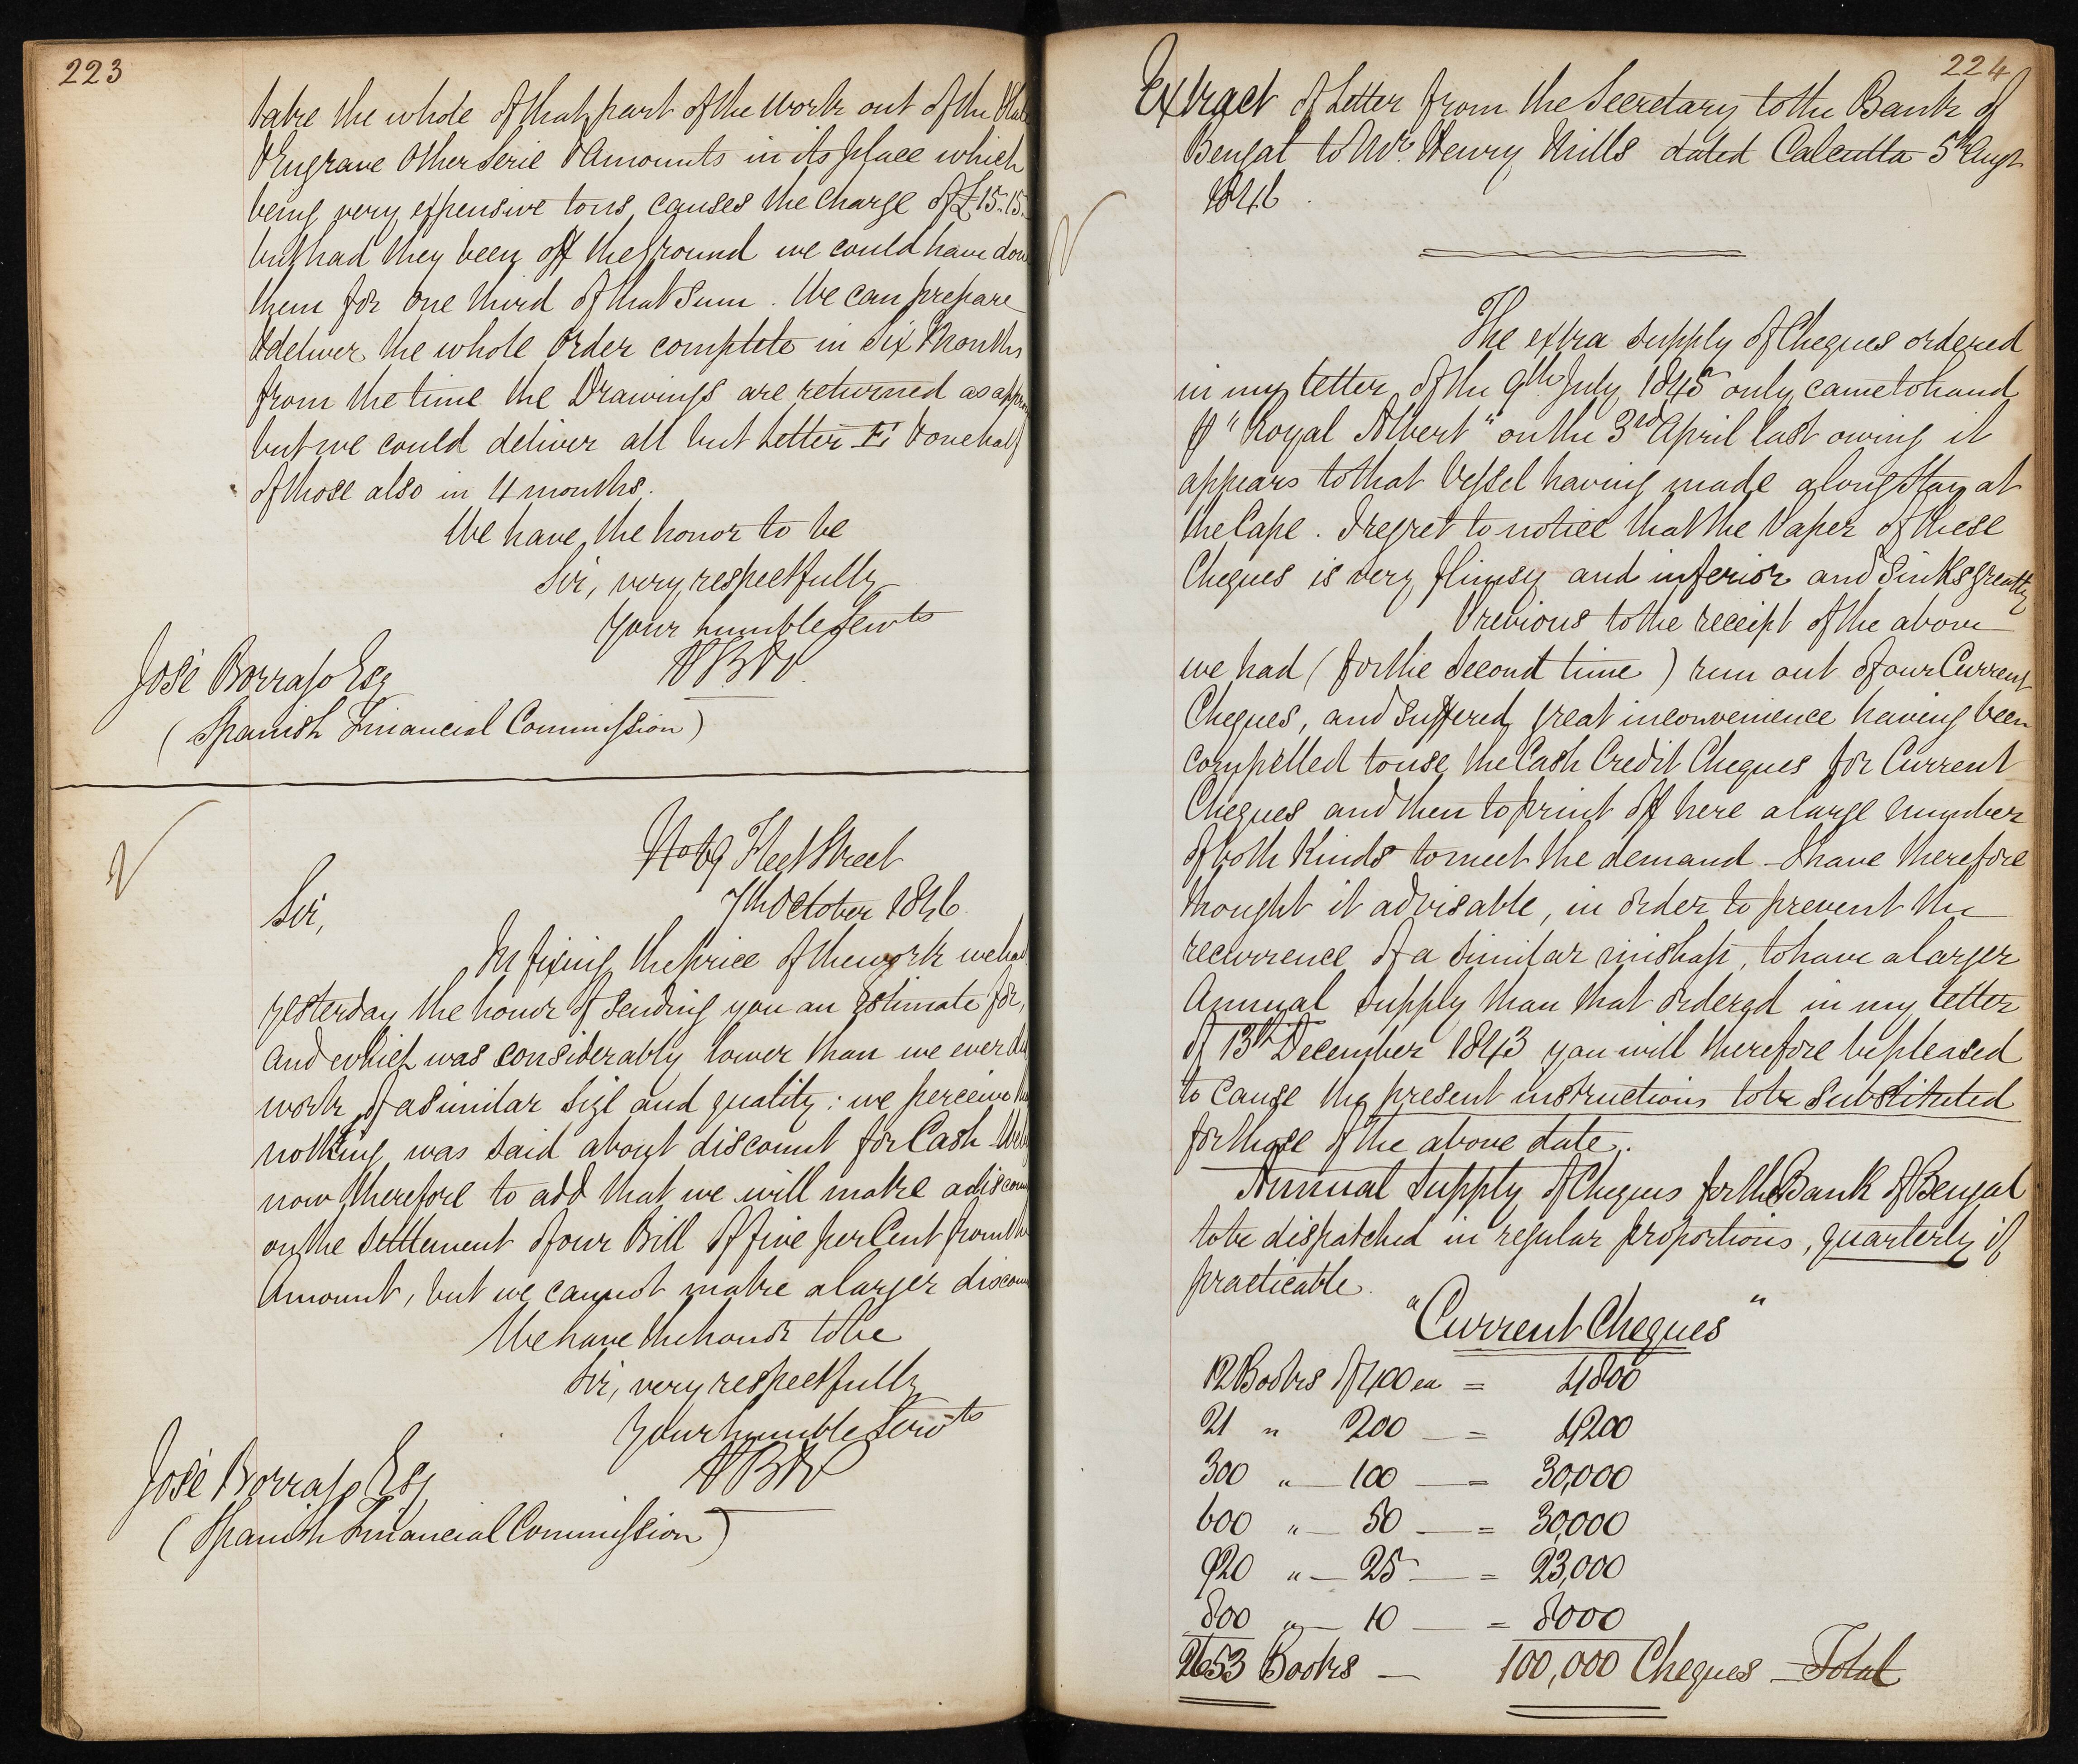 223
take the whole of that part of the work out of the Plate
& Engrave other Serie & Amounts in its place which
being very expensive to us causes the charge of £15.15.
but had they been off the ground we could have done
them for one third of that Sum. We can prepare
& deliver the whole Order complete in Six Months
from the time the Drawings are returned as approv
but we could deliver all but Letter E & one half
of those also in 4 months.
We have the honor to be
Sir, very respectfully
Your humble Servts
PB&P
José Borrajo Esq
(Spanish Financial Commission)
No 69 Fleet Street
7th October 1846
Sir,
In fixing the price of the work we had
yesterday the honor of sending you an Estimate for,
and which was considerably lower than we ever did
work of a similar size and quality: we perceive
nothing was said about discount for Cash
now therefore to add that we will make a discoun
on the settlement of our Bill of five per Cent from the
Amount, but we cannot make a larger discoun
We have the honor to be
Sir, very respectfully
Your humble Servts
PB&P
José Borrajo Esq
(Spanish Financial Commission)
224
Extract of Letter from the Secretary to the Bank of
Bengal to Mr. Henry Hills dated Calcutta 5th Augt
1846.
The extra supply of Cheques ordered
in my letter of the 9th July 1845 only came to hand
p "Royal Albert" on the 3rd April last owing it
appears to that Vessel having made a long stay at
the Cape. I regret to notice that the Paper of these
Cheques is very flimsy and inferior and Sinks greatly
Previous to the receipt of the above
we had (for the second time) run out of our Current
Cheques, and suffered great inconvenience having been
compelled to use the Cash Credit Cheques for Current
Cheques and then to print off here a large number
of both Kinds to meet the demand - I have therefore
thought it advisable, in order to prevent the
recurrence of a similar mishap, to have a larger
Annual supply than that ordered in my letter
of 13th December 1843 you will therefore be pleased
to cause the present instructions to be substituted
for those of the above date.
Annual Supply of Cheques for the Bank of Bengal
to be dispatched in regular proportions, quarterly if
practicable.
"Current Cheques"
12 Books of 400 ea = 4800
21 " 200 — = 4200
300 " — 100 — = 30,000
600 " — 50 — = 30,000
920 " — 25 — = 23,000
800 " — 10 — = 8000
2653 Books — 100,000 Cheques — Total